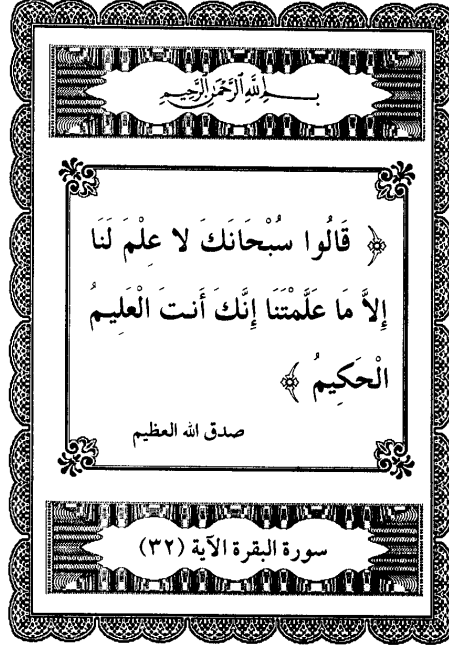 بسم الله الرحمن الرحيم
﴿ قَالُوا سُبْحَانَكَ لا عِلْمَ لَنَا
إِلاَّ مَا عَلَّمْتَنَا إِنَّكَ أَنتَ الْعَلِيمُ
الْحَكِيمُ ﴾
صدق الله العظيم
سورة البقرة الآية (٣٢)